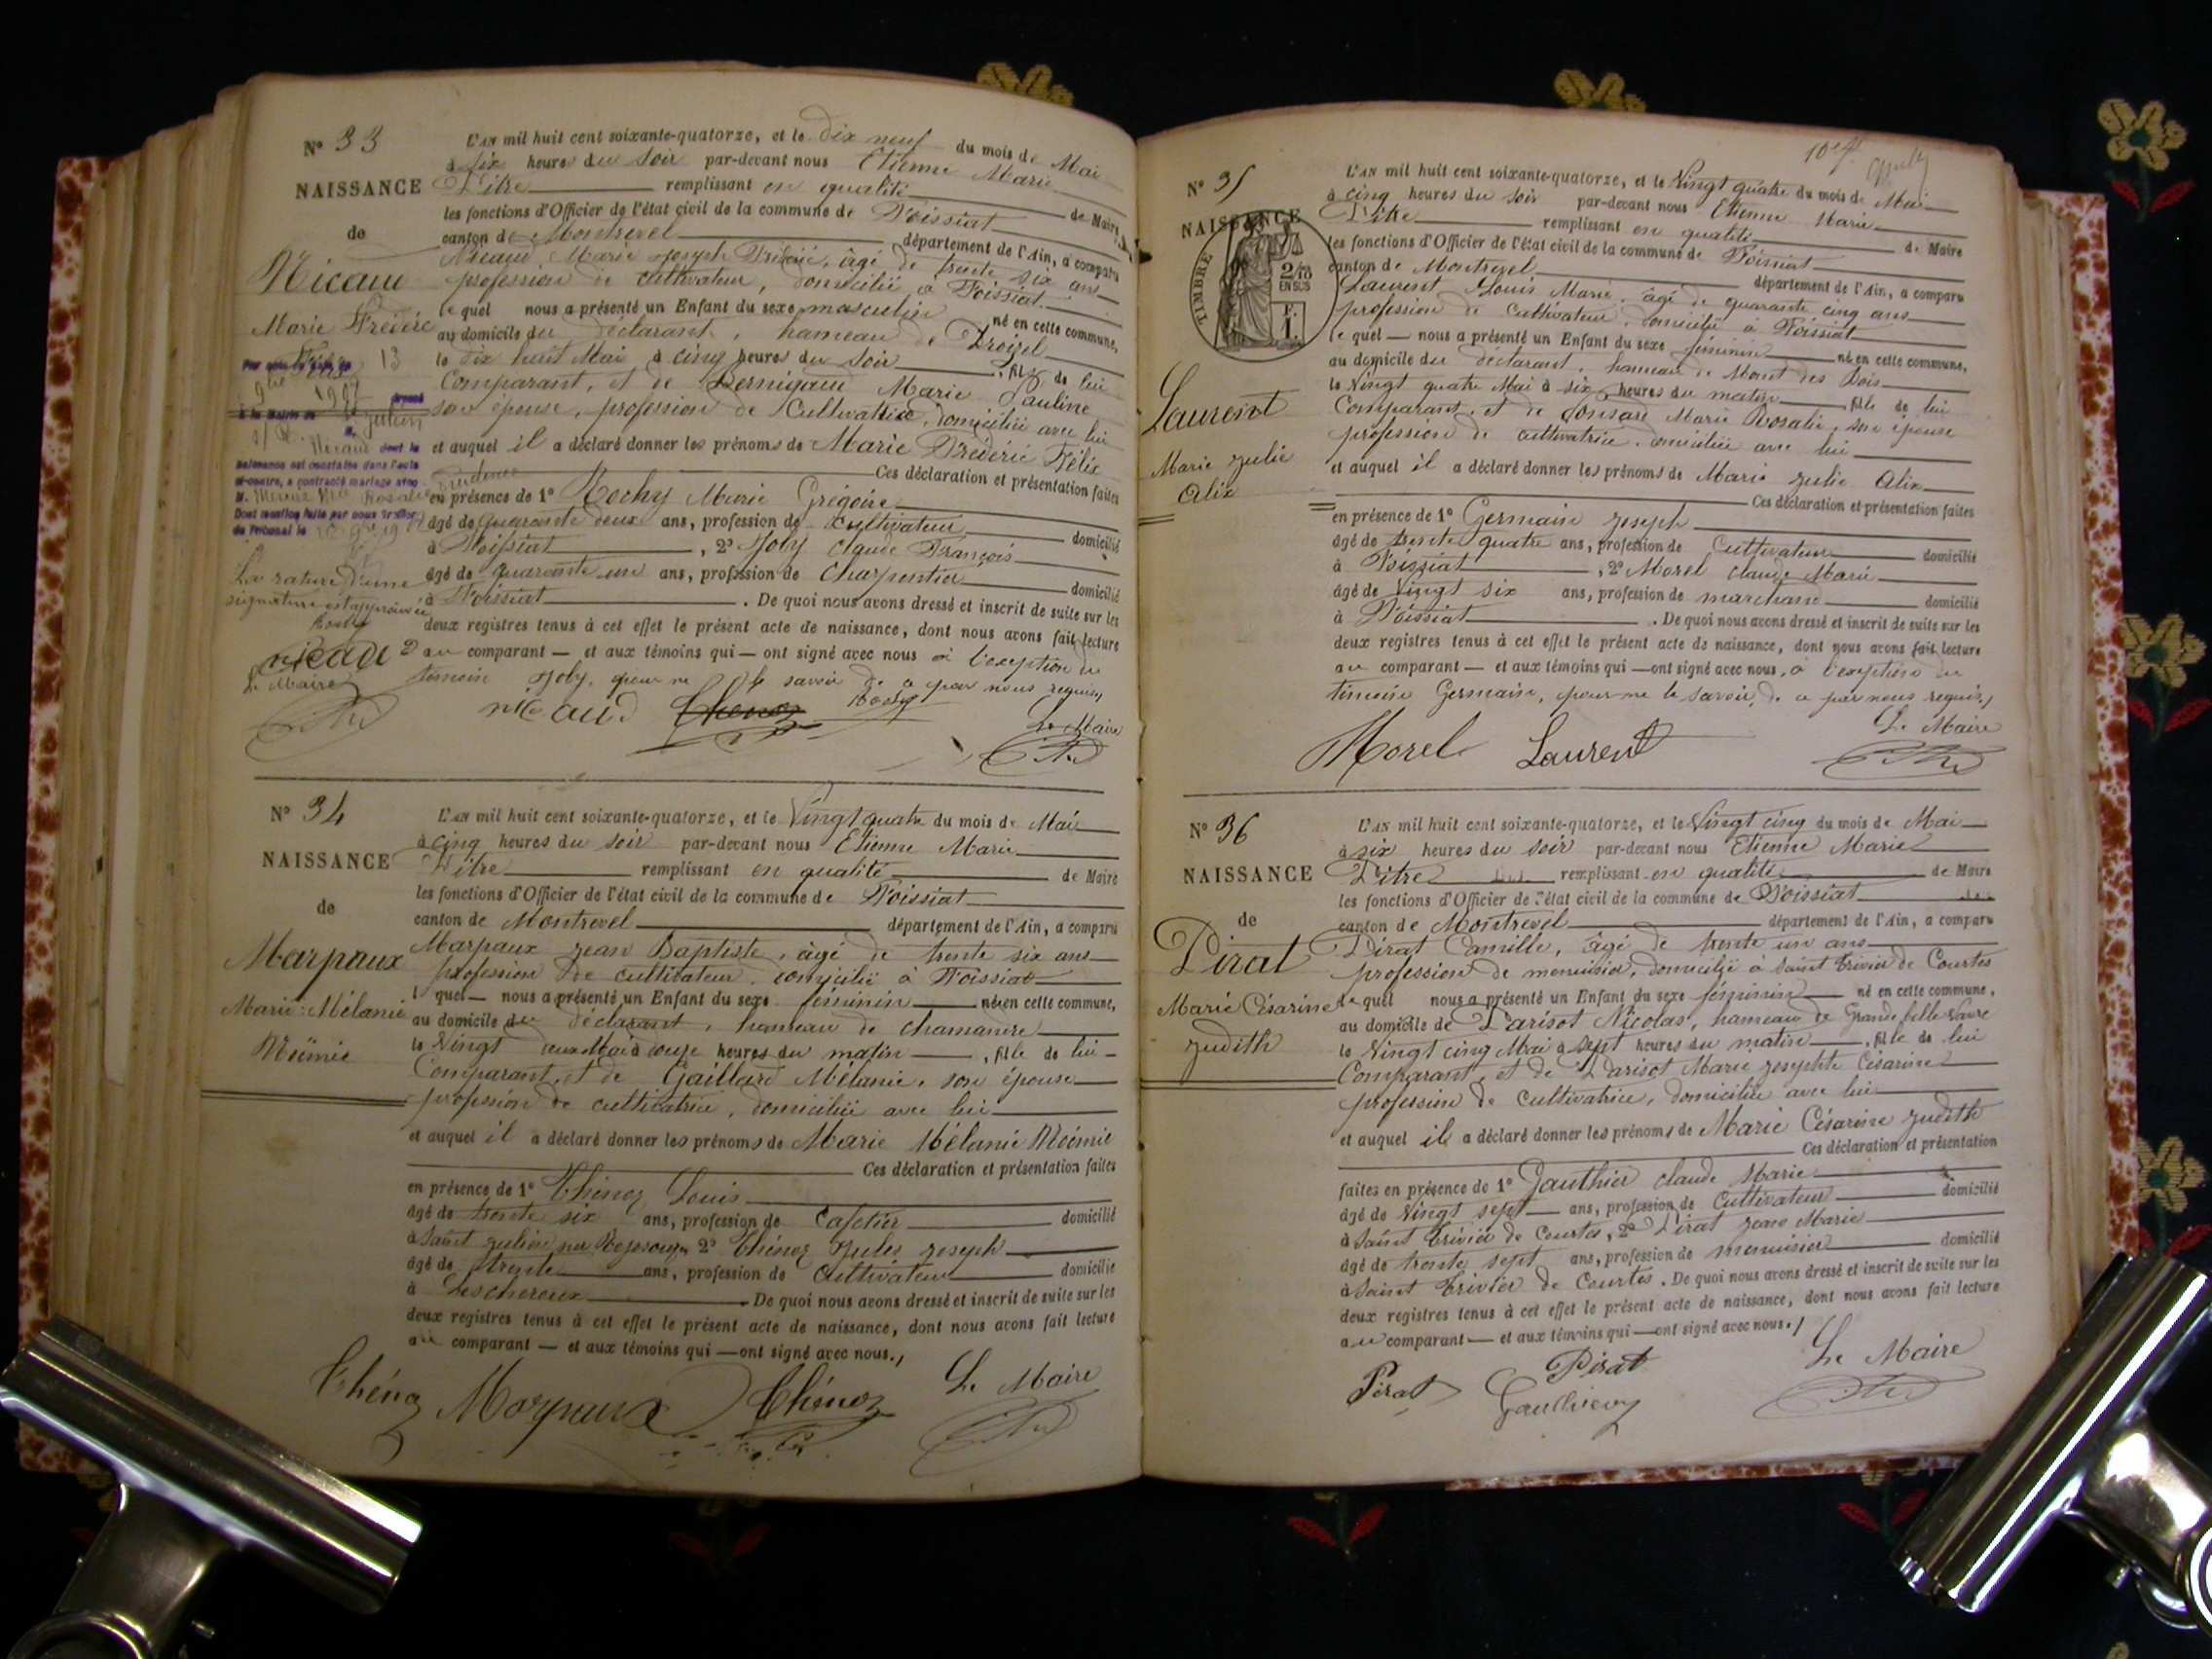 N° 33
NAISSANCE
de
Nicaud
Marie Fréderic
L'AN mil huit cent soixante-quatorze, et le dix neuf du mois de Mai
à six heures du soir par-devant nous Etienne Marie
Pitre remplissant en qualité de Maire
les fonctions d'Officier de l'état civil de la commune de Foissiat
canton de Montrevel département de l'Ain, a comparu
Nicaud Marie Joseph Fréderic, âgé de trente six ans
profession de cultivateur, domicilié à Foissiat
lequel nous a présenté un Enfant du sexe masculin né en cette commune,
au domicile du déclarant, hameau de
le dix huit Mai à cinq heures du soir, fils de lui
Comparant, et de Pernigaud Marie Pauline
son épouse, profession de Cultivatrice, domiciliée avec lui
et auquel il a déclaré donner les prénoms de Marie Fréderic Félix
Prudence Ces déclaration et présentation faites
en présence de 1° Rochy Marie Grégoire
âgé de quarante deux ans, profession de cultivateur domicilié
à Foissiat, 2° Joly Claude François
âgé de quarante un ans, profession de charpentier domicilié
à Foissiat. De quoi nous avons dressé et inscrit de suite sur les
deux registres tenus à cet effet le présent acte de naissance, dont nous avons fait lecture
au comparant et aux témoins qui ont signé avec nous à l'exception du
témoin Joly, pour ne le savoir de ce par nous requis,
13
9bre 1907
à la Mairie de St Julien
s/ R.
Nicaud dont la
naissance est constatée dans l'acte
ci-contre, a contracté mariage avec
Dont mention faite par nous Greffier
du Tribunal le
La rature d'une
signature est approuvée
Rochy
nicaud
Le Maire
nicaud Chenoz Rochy Le Maire
N° 34
NAISSANCE
de
Marpaux
Marie Mélanie
Noémie
L'AN mil huit cent soixante-quatorze, et le Vingt quatre du mois de Mai
à cinq heures du soir par-devant nous Etienne Marie
Pitre remplissant en qualité de Maire
les fonctions d'Officier de l'état civil de la commune de Foissiat
canton de Montrevel département de l'Ain, a comparu
Marpaux Jean Baptiste, âgé de trente six ans
profession de cultivateur, domicilié à Foissiat
lequel nous a présenté un Enfant du sexe féminin né en cette commune,
au domicile du déclarant, hameau de chamandre
le Vingt deux Mai à onze heures du matin, fille de lui
Comparant, et de Gaillard Mélanie, son épouse
profession de cultivatrice, domiciliée avec lui
et auquel il a déclaré donner les prénoms de Marie Mélanie Noémie
Ces déclaration et présentation faites
en présence de 1° Chénoz Louis
âgé de trente six ans, profession de Cafetier domicilié
à Saint Julien sur Reyssouze 2° Chénoz Jules Joseph
âgé de trente ans, profession de Cultivateur domicilié
à Lescheroux. De quoi nous avons dressé et inscrit de suite sur les
deux registres tenus à cet effet le présent acte de naissance, dont nous avons fait lecture
au comparant et aux témoins qui ont signé avec nous.
Chénoz Marpaux Chénoz Le Maire
10e f.
N° 35
NAISSANCE
TIMBRE
2/10
EN SUS
F.
1.
Laurent
Marie Julie
Alix
L'AN mil huit cent soixante-quatorze, et le Vingt quatre du mois de Mai
à cinq heures du soir par-devant nous Etienne Marie
Pitre remplissant en qualité de Maire
les fonctions d'Officier de l'état civil de la commune de Foissiat
canton de Montrevel département de l'Ain, a comparu
Laurent Louis Marie, âgé de quarante cinq ans
profession de Cultivateur, domicilié à Foissiat
lequel nous a présenté un Enfant du sexe féminin né en cette commune,
au domicile du déclarant, hameau de Mont des Bois
le Vingt quatre Mai à six heures du matin, fille de lui
Comparant, et de Marie Rosalie, son épouse
profession de cultivatrice, domiciliée avec lui
et auquel il a déclaré donner les prénoms de Marie Julie Alix
Ces déclaration et présentation faites
en présence de 1° Germain Joseph
âgé de trente quatre ans, profession de Cultivateur domicilié
à Foissiat, 2° Morel Claude Marie
âgé de Vingt six ans, profession de marchand domicilié
à Foissiat. De quoi nous avons dressé et inscrit de suite sur les
deux registres tenus à cet effet le présent acte de naissance, dont nous avons fait lecture
au comparant et aux témoins qui ont signé avec nous, à l'exception du
témoin Germain, pour ne le savoir, de ce par nous requis,
Morel Laurent Le Maire
N° 36
NAISSANCE
de
Pirat
Marie Césarine
Judith
L'AN mil huit cent soixante-quatorze, et le Vingt cinq du mois de Mai
à six heures du soir par-devant nous Etienne Marie
Pitre remplissant en qualité de Maire
les fonctions d'Officier de l'état civil de la commune de Foissiat
canton de Montrevel département de l'Ain, a comparu
Pirat Camille, âgé de trente un ans
profession de menuisier, domicilié à Saint Trivier de Courtes
lequel nous a présenté un Enfant du sexe féminin né en cette commune,
au domicile de Parisot Nicolas, hameau de Grande
le Vingt cinq Mai à sept heures du matin, fille de lui
Comparant, et de Parisot Marie Josephte Césarine
profession de Cultivatrice, domiciliée avec lui
et auquel il a déclaré donner les prénoms de Marie Césarine Judith
Ces déclaration et présentation
faites en présence de 1° Gauthier Claude Marie
âgé de Vingt sept ans, profession de Cultivateur domicilié
à Saint Trivier de Courtes, 2° Pirat Jean Marie
âgé de trente sept ans, profession de menuisier domicilié
à Saint Trivier de Courtes. De quoi nous avons dressé et inscrit de suite sur les
deux registres tenus à cet effet le présent acte de naissance, dont nous avons fait lecture
au comparant et aux témoins qui ont signé avec nous.
Pirat Gauthier Pirat Le Maire